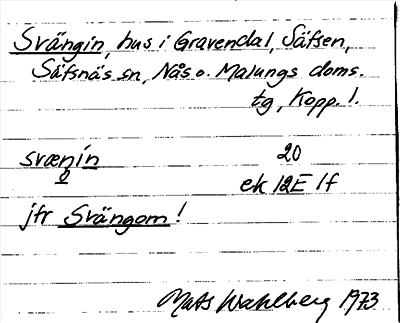 Svängin, hus i Gravendal, Säfsen,
Säfsnäs sn, Nås o. Malungs doms.
tg, Kopp. l.
svænin 20
ek 12E 1f
jfr Svängom!
Mats Wahlberg 1973